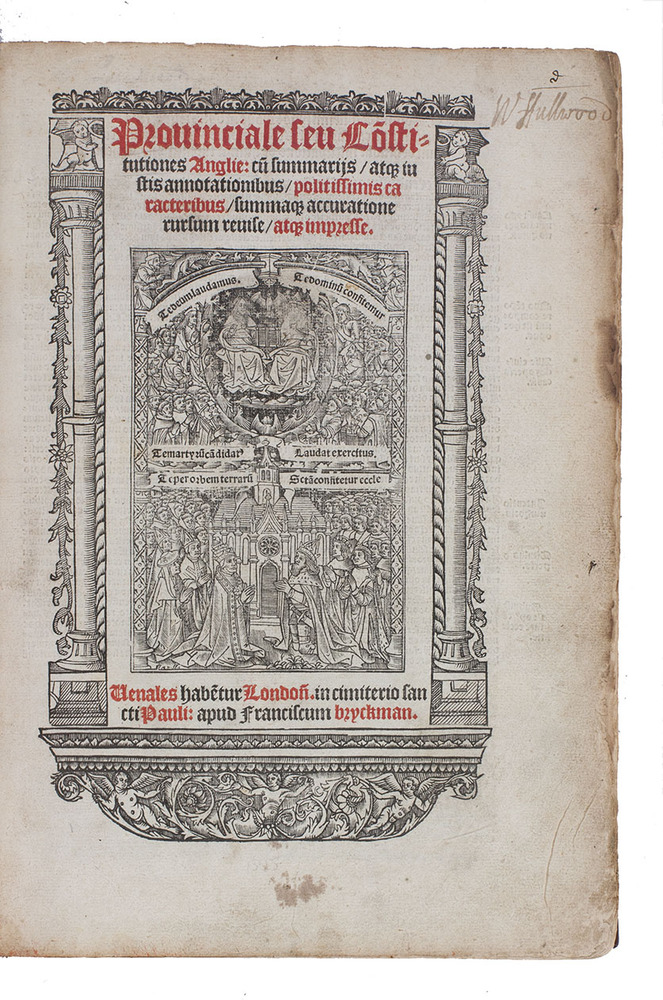 W Hullwood
Prouinciale seu Cōsti-
tutiones Anglie: cū summarijs / atqꝫ iu
stis annotationibus / politissimis ca
racteribus / summaqꝫ accuratione
rursum reuise / atqꝫ impresse.
Te deum laudamus.
Te dominū confitemur
Te martyrū cādidat⁹
Laudat exercitus.
Te per orbem terrarū
Sctā confitetur eccle
Uenales habētur Londoñ. in cimiterio san
cti Pauli: apud Franciscum bryckman.